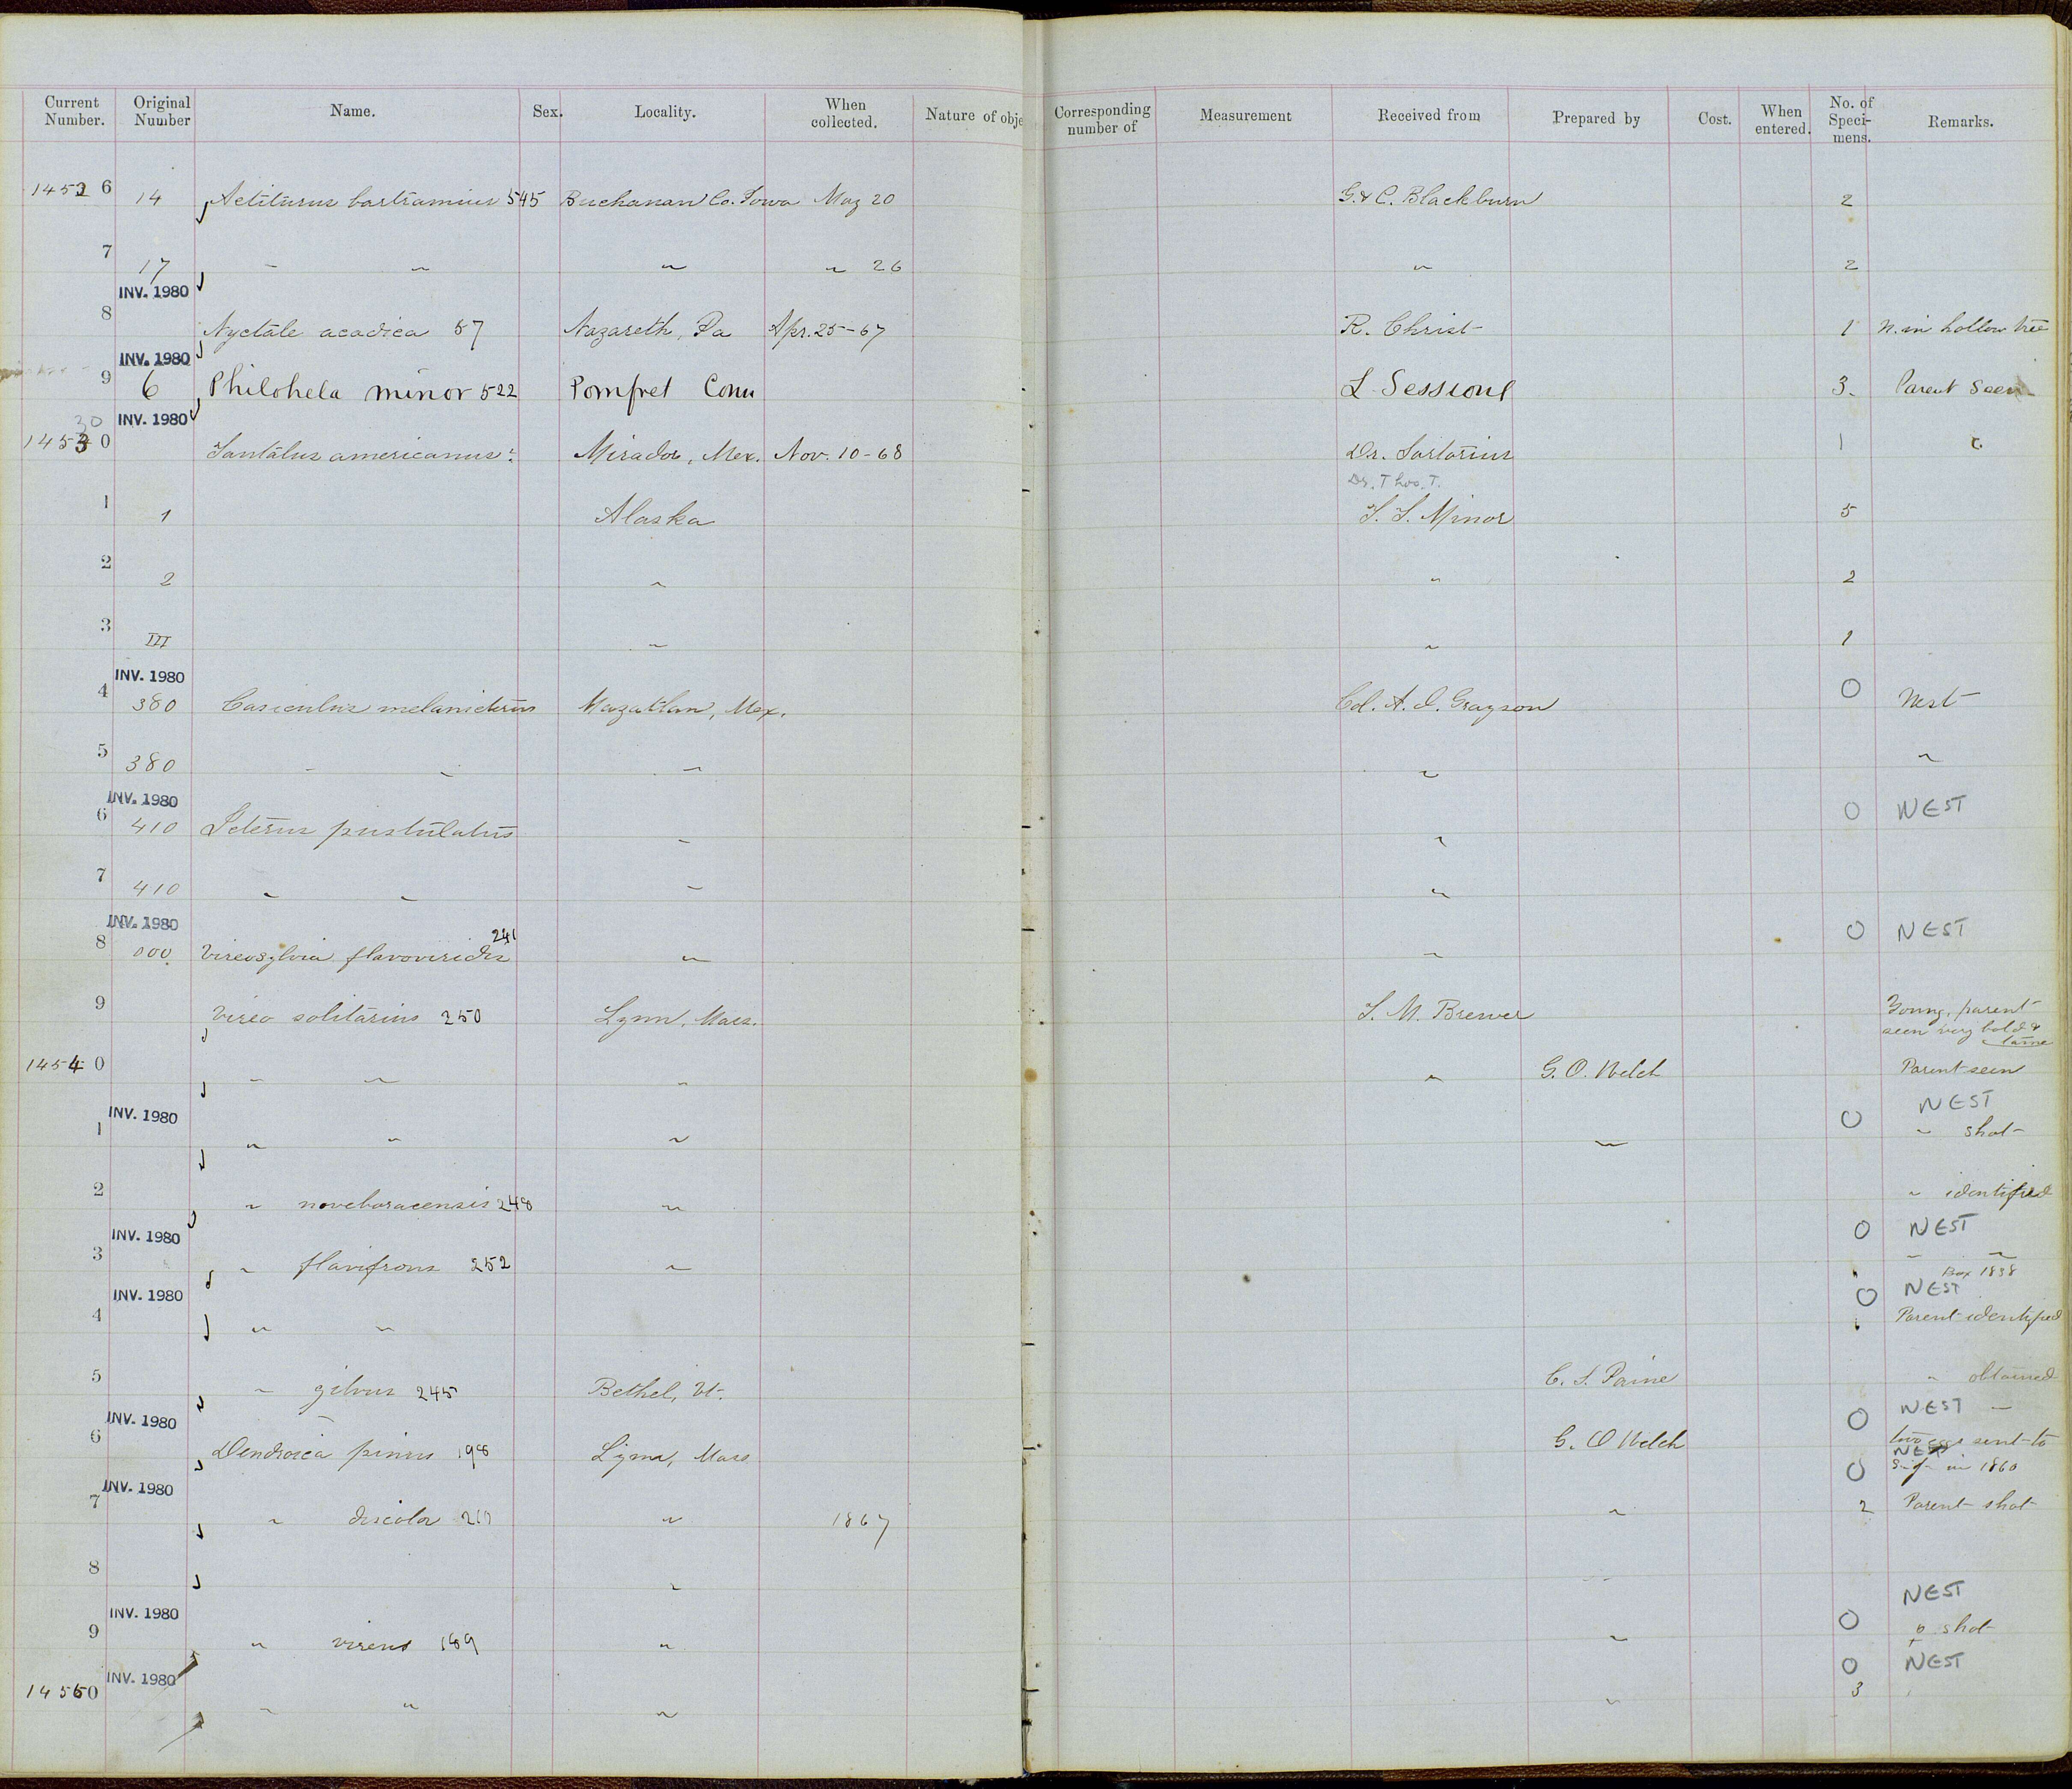 Current Number. Original Number Name. Sex. Locality. When collected. Nature of obje Corresponding number of Measurement Received from Prepared by Cost. When entered. No. of Speci-mens. Remarks.
1452 6 14 Actiturus bartramius 545 Buchanan Co. Iowa May 20 G. & C. Blackburn 2
7 17 " " " " 26 " 2
INV. 1980
8 Nyctale acadica 57 Nazareth, Pa Apr. 25-67 R. Christ 1 N. in hollow tree
INV. 1980
9 6 Philohela minor 522 Pomfret Conn L Sessions 3. Parent seen
30 INV. 1980
1453 0 Tantalus americanus Mirador, Mex. Nov. 10-68 Dr. Sartorius 1 c.
Dr. Thos. T.
1 1 Alaska T. T. Minor 5
2 2 " " 2
3 III " " 1
INV. 1980
4 380 Casiculus melanicterus Mazatlan, Mex. Col. A. J. Grayson 0 Nest
5 380 " " " " "
INV. 1980
6 410 Icterus pustulatus " " 0 NEST
7 410 " " " "
INV. 1980
8 000 Vireosylvia flavoviridis 241 " " 0 NEST
9 Vireo solitarius 250 Lynn, Mass. T. M. Brewer Young, parent
seen very bold &
tame
1454 0 " " " " G. O. Welch Parent seen
INV. 1980 0 NEST
1 " " " " " shot
2 " noveboracensis 248 " " identified
INV. 1980 0 NEST
3 " flavifrons 252 " " "
Box 1838
INV. 1980 0 NEST
4 " " Parent identified
5 " gilvus 245 Bethel, Vt. C. S. Paine " obtained
INV. 1980 0 NEST "
6 Dendroica pinus 198 Lynn, Mass G. O Welch two eggs sent to
NEST
0 in 1860
INV. 1980
7 " discolor 210 " 1867 " 2 Parent shot
8 " "
INV. 1980 0 NEST
9 " virens 189 " " p shot
INV. 1980 0 NEST
1455 0 " " " " 3